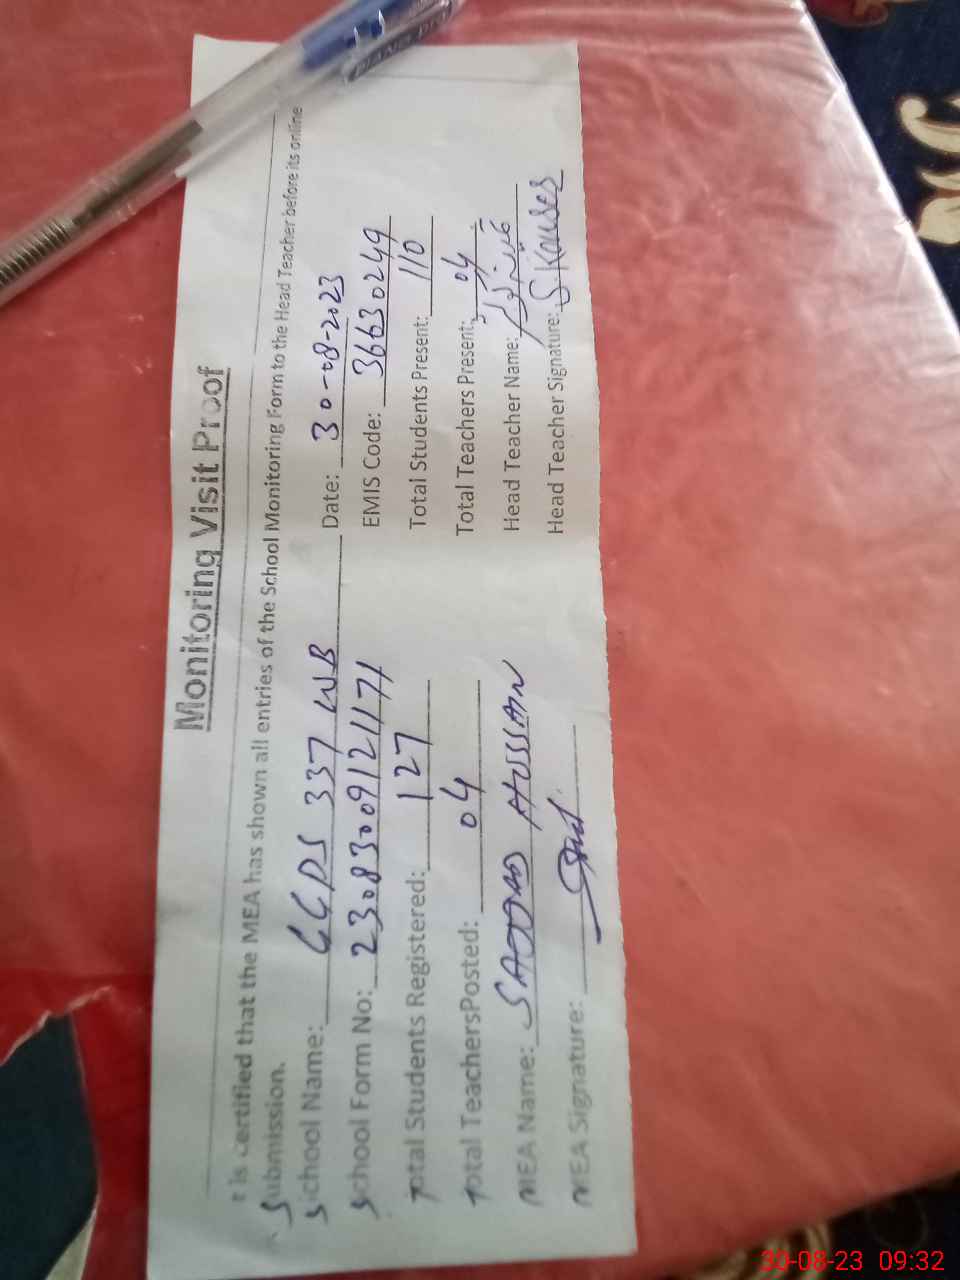 Monitoring Visit Proof
t is certified that the MEA has shown all entries of the School Monitoring Form to the Head Teacher before its online
Submission.
School Name: GGPS 337 WB Date: 30-08-2023
School Form No: 23083009121171 EMIS Code: 36630249
Total Students Registered: 127 Total Students Present: 110
Total TeachersPosted: 04 Total Teachers Present: 04
MEA Name: SAJJAD HUSSAIN Head Teacher Name:
MEA Signature: Head Teacher Signature: S.Kouser
PIANO
30-08-23 09:32